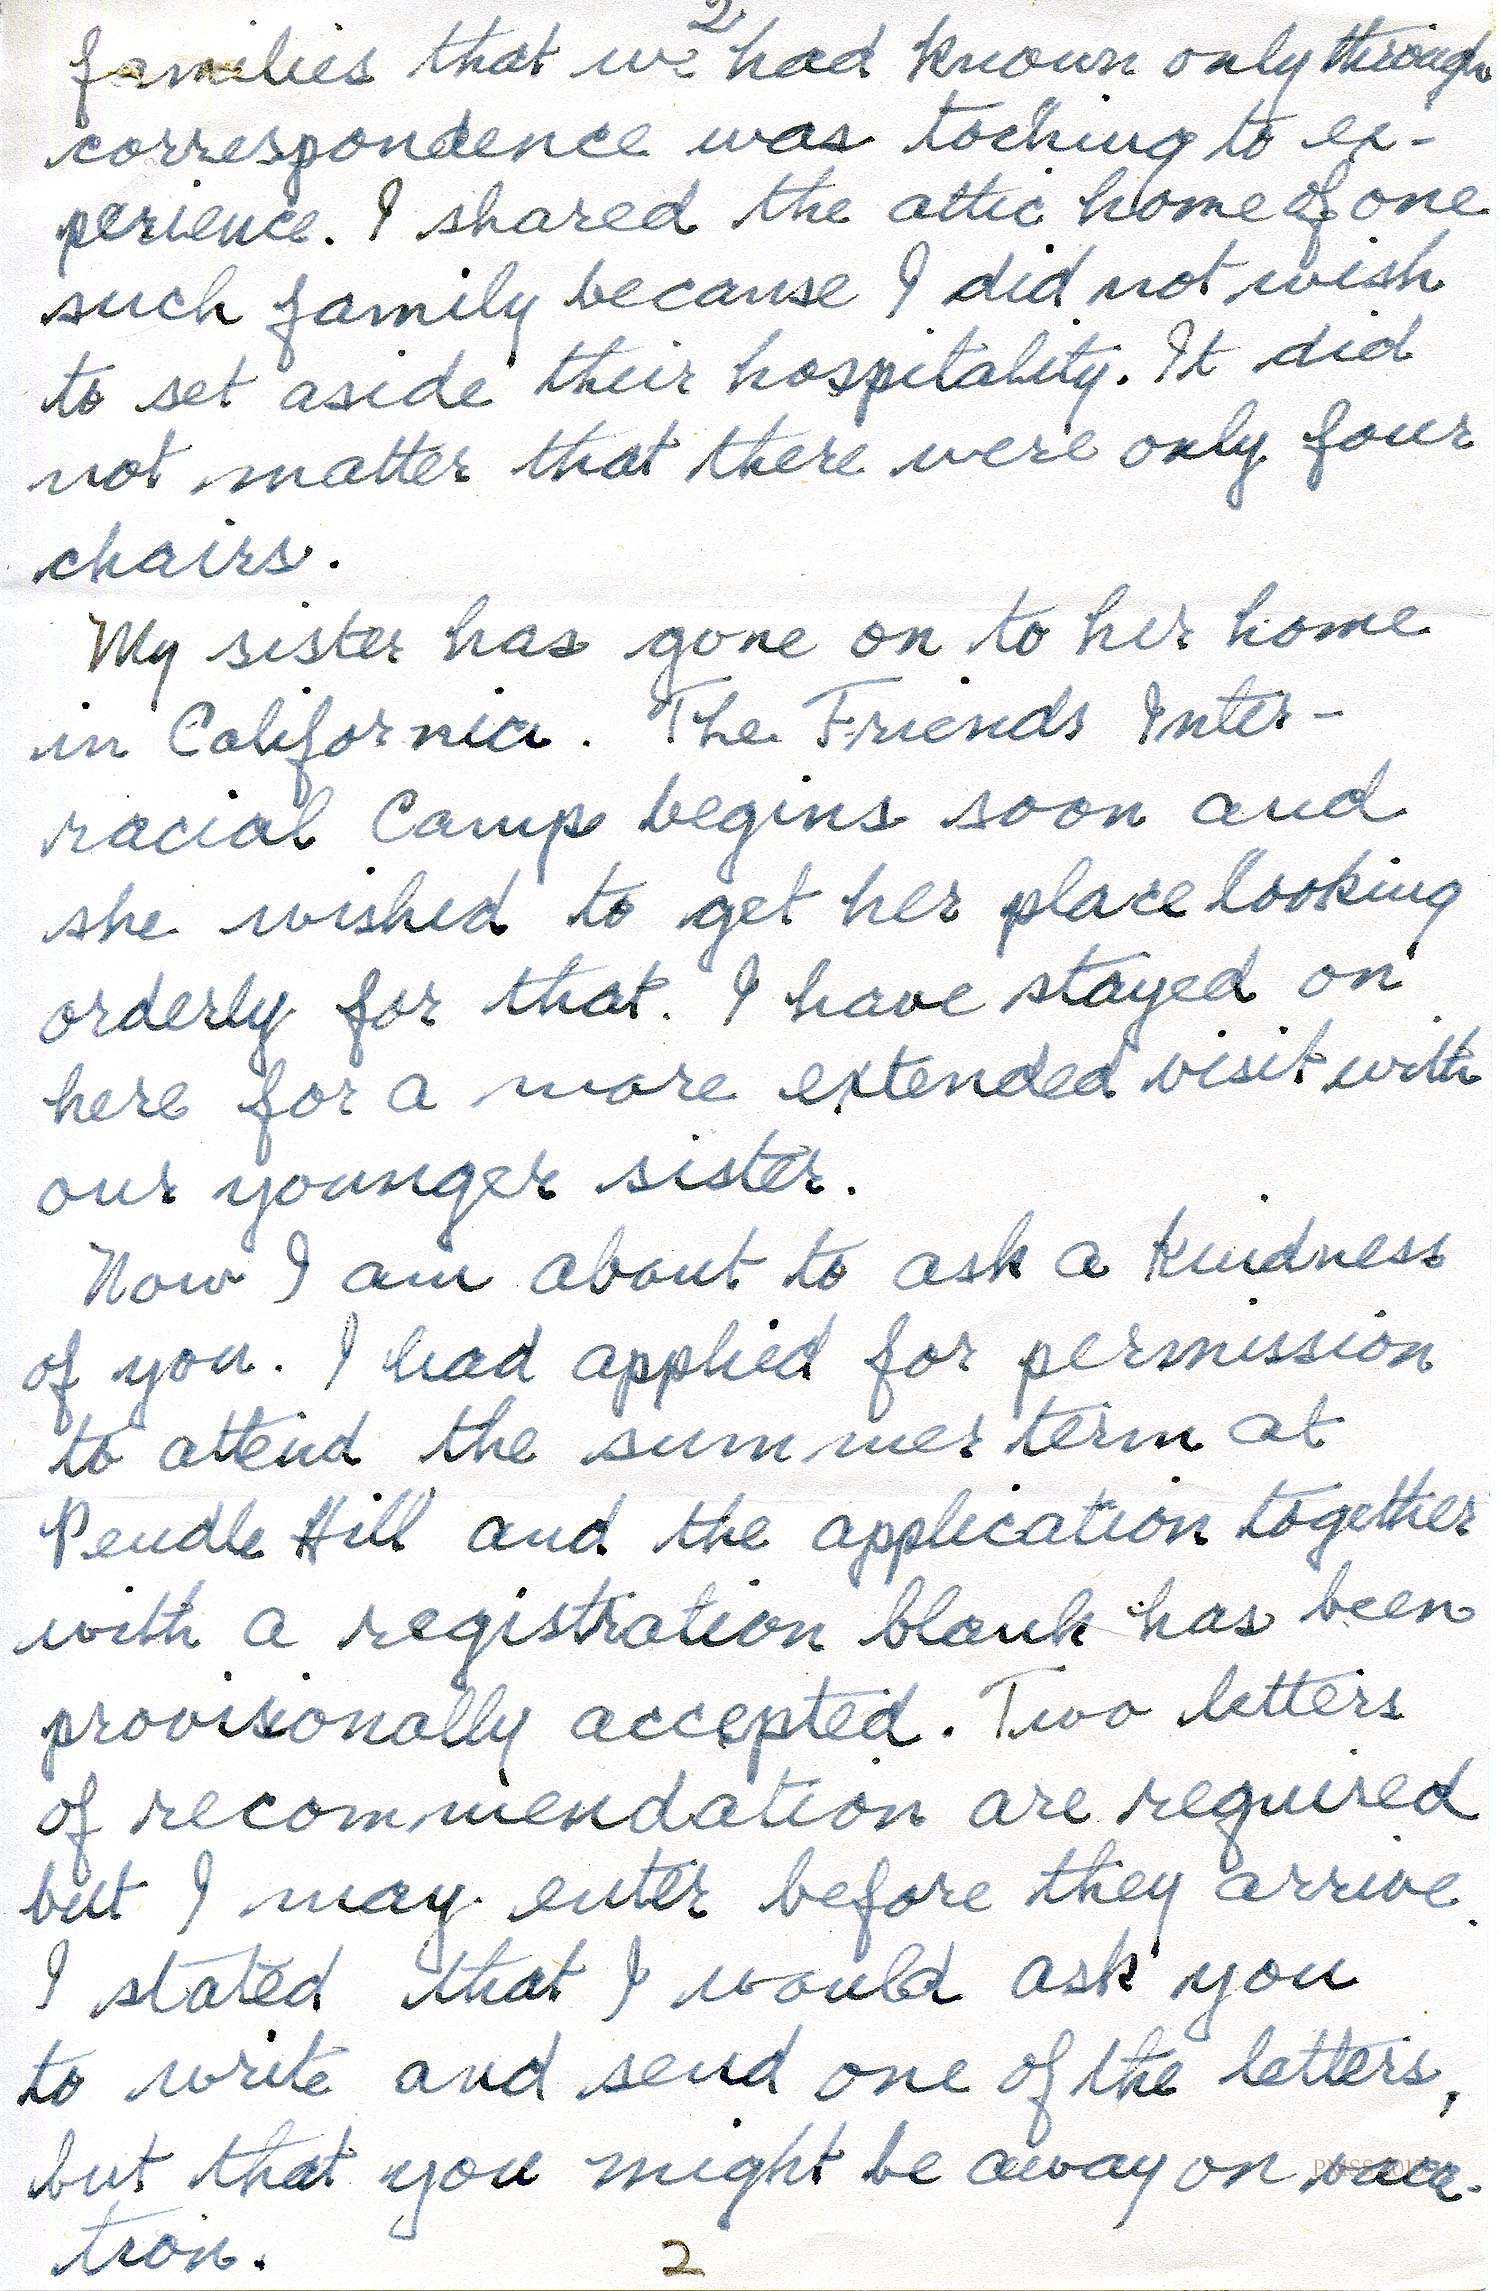 2
families that we had known only through
correspondence was toching to ex-
perience. I shared the attic home of one
such family because I did not wish
to set aside their hospitality. It did
not matter that there were only four
chairs.
My sister has gone on to her home
in California. The Friends Inter-
racial Camp begins soon and
she wished to get her place looking
orderly for that. I have stayed on
here for a more extended visit with
our younger sister.
Now I am about to ask a kindness
of you. I had applied for permission
to attend the summer term at
Pendle Hill and the application together
with a registration blank has been
provisionally accepted. Two letters
of recommendation are required
but I may enter before they arrive.
I stated that I would ask you
to write and send one of the letters,
but that you might be away on vaca-
tion.
2